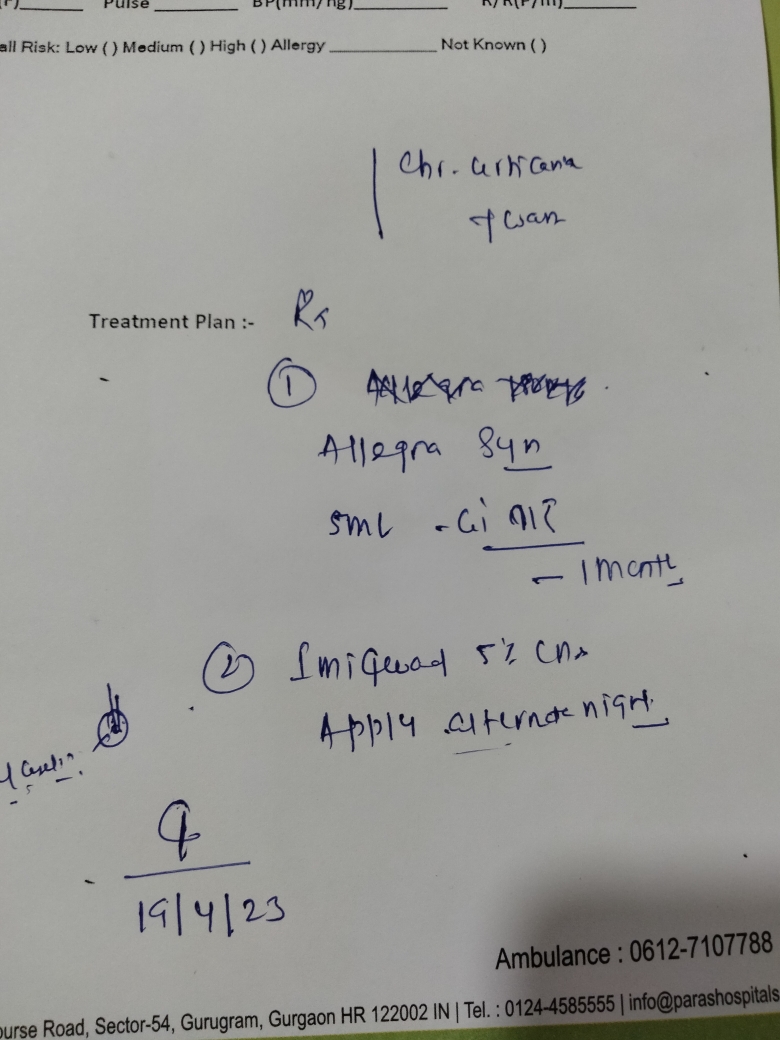 Pulse BP(mm/hg) R/R(P/m)
all Risk: Low ( ) Medium ( ) High ( ) Allergy Not Known ( )
Chr. urticaria
+ wart
Treatment Plan :- Rx
① Allegra
Allegra Syp
5ml -
- 1 month
② Imiquad 5% Crm
Apply alternate night
19/4/23
Ambulance : 0612-7107788
ourse Road, Sector-54, Gurugram, Gurgaon HR 122002 IN | Tel. : 0124-4585555 | info@parashospitals